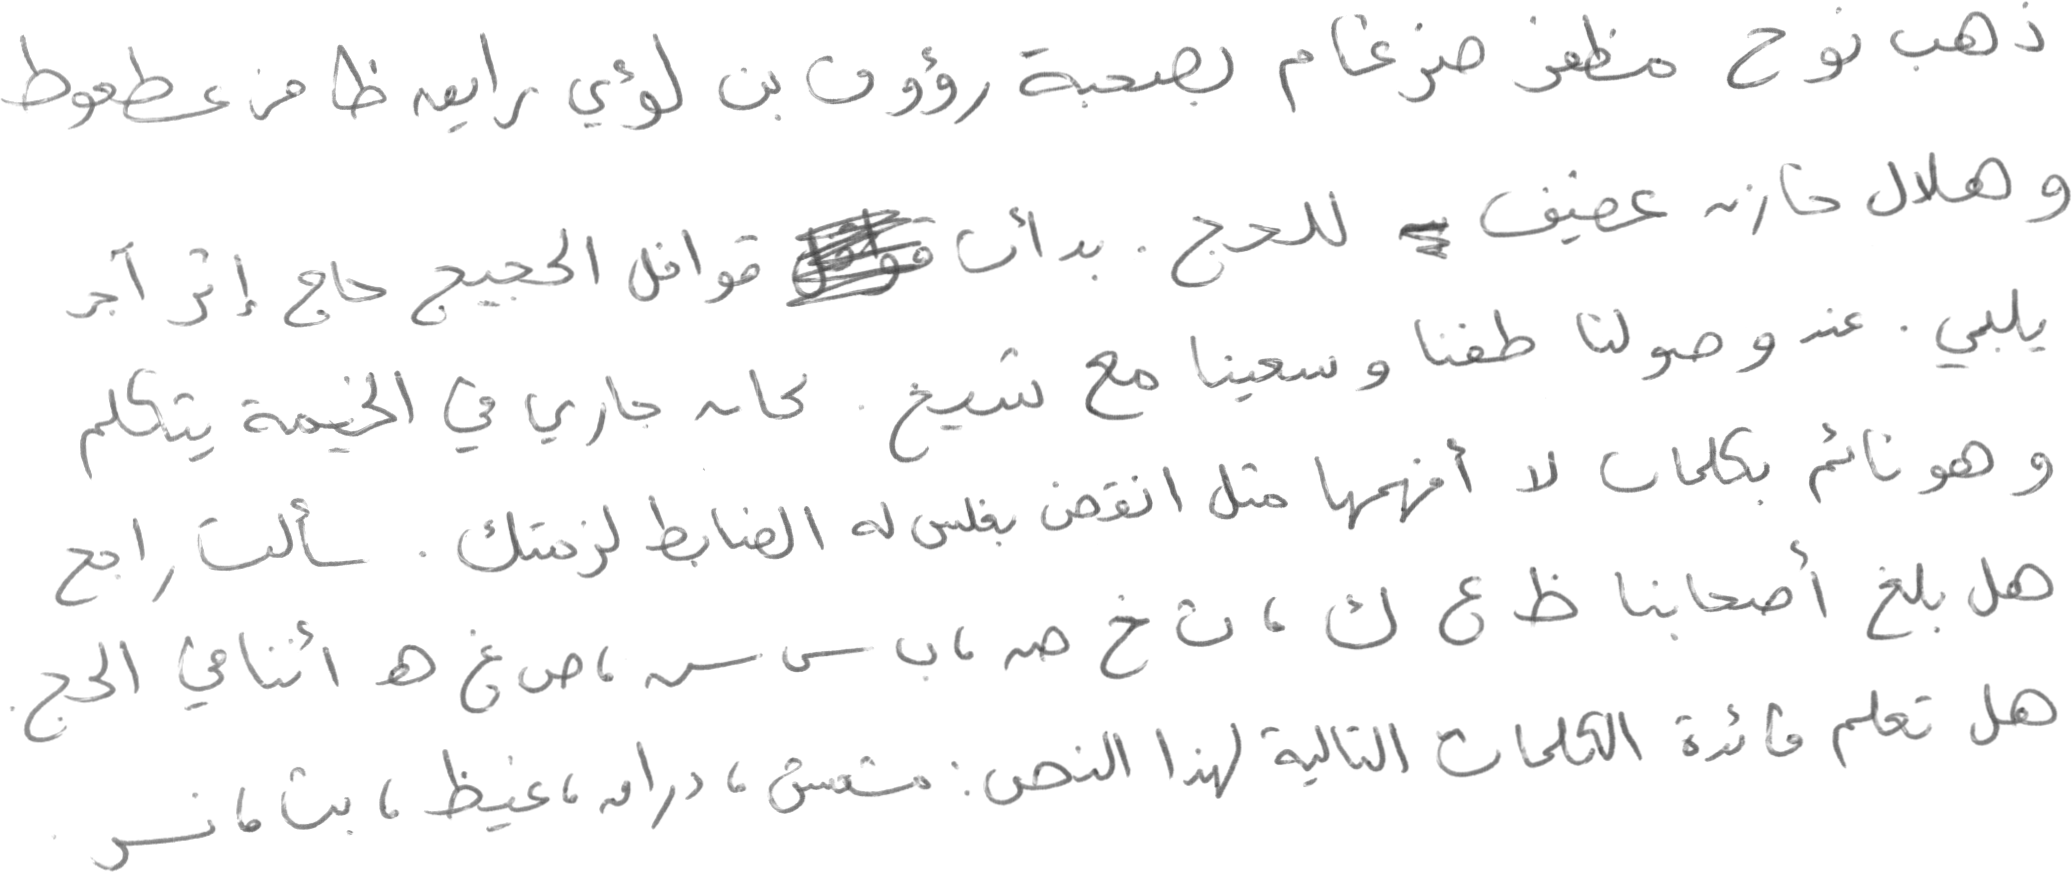 ذهب نوح مظفر ضرغام بصحبة رؤوف بن لؤي رايق ظافر عطعوط
وهلال خازن عفيف للحج . بدأت قوافل الحجيج حاج إثر آخر
يلبي . عند وصولنا طفنا وسعينا مع شيخ . كان جاري في الخيمة يتكلم
وهو نائم بكلمات لا أفهمها مثل انقض بغلس له الضابط لزمتك . سألت راجح
هل بلغ أصحابنا ظ ع ك ، ث خ ص ، ب س س ، ص غ ه اثنا في الحج .
هل تعلم فائدة الكلمات التالية لهذا النص : مشمش ، دراق ، غيظ ، بث ، نسر .